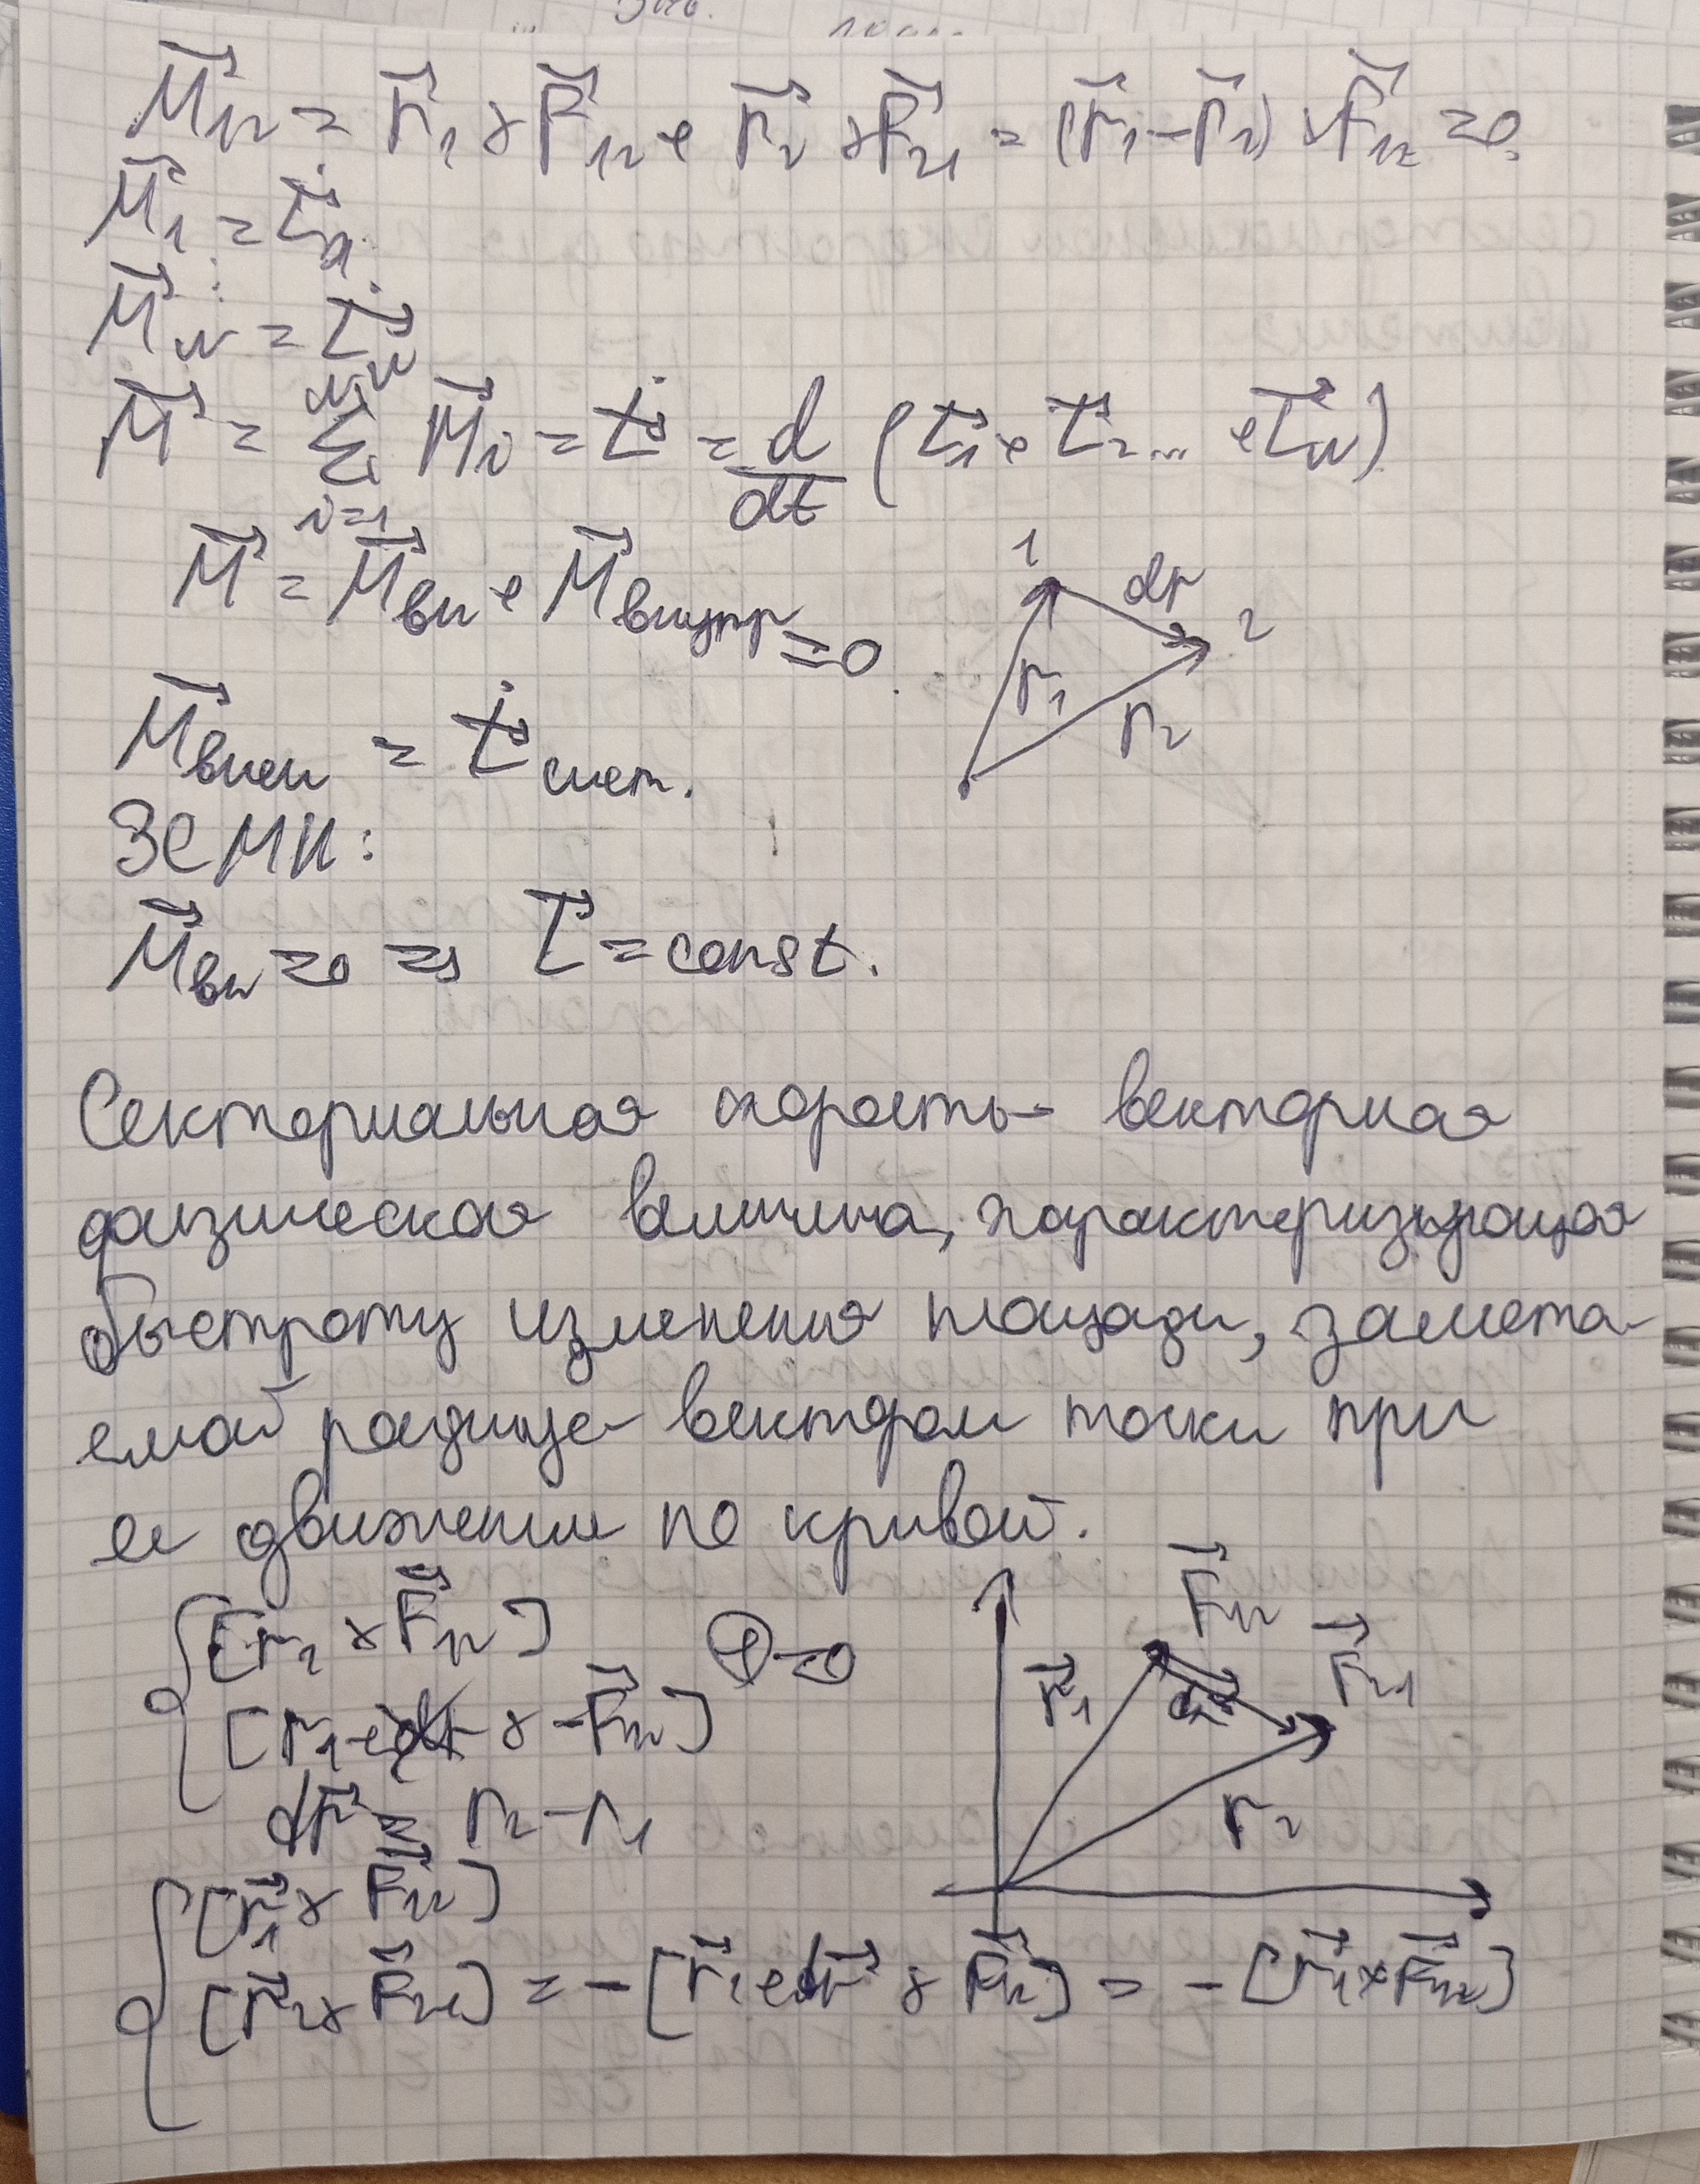 M⃗₁₂ = r⃗₁ × F⃗₁₂ + r⃗₂ × F⃗₂₁ = (r⃗₁ − r⃗₂) × F⃗₁₂ = 0.
M⃗₁ = L⃗̇₁
⋮
M⃗_N = L⃗̇_N
M⃗ = Σ_{i=1}^{N} M⃗ᵢ = L⃗̇ = d/dt (L⃗₁ + L⃗₂ ... + L⃗_N)
M⃗ = M⃗вн + M⃗внутр = 0
1 dr 2
r₁ r₂
M⃗внеш = L⃗̇сист.
ЗСМИ:
M⃗вн = 0 => L⃗ = const.
Секториальная скорость - векторная
физическая величина, характеризующая
быстроту изменения площади, замета-
емой радиус- вектором точки при
ее движении по кривой.
{ [r₁ × F⃗₁₂]
[r₁ + dr × −F⃗₁₂] ⊕ = 0
dr⃗ = r₂ − r₁
F⃗₁₂ F⃗₂₁
r⃗₁ dr⃗ r₂
{ [r⃗₁ × F⃗₁₂]
[r⃗₂ × F⃗₂₁] = − [r⃗₁ + dr⃗ × F⃗₁₂] = − [r⃗₁ × F⃗₁₂]